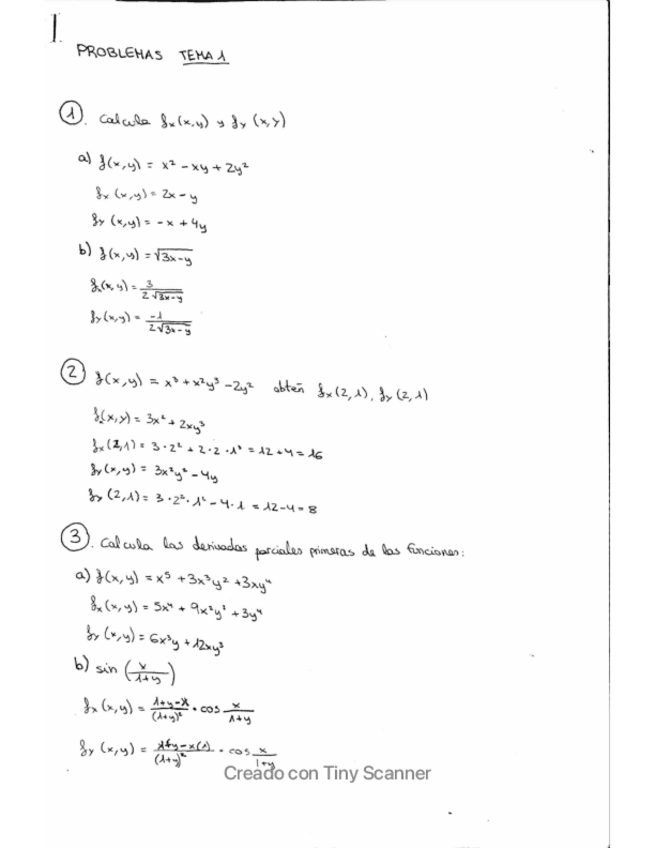 1.
PROBLEMAS TEMA 1
1. Calcula fx(x,y) y fy(x,y)
a) f(x,y) = x² - xy + 2y²
fx(x,y) = 2x - y
fy(x,y) = -x + 4y
b) f(x,y) = √(3x-y)
fx(x,y) = 3/(2√(3x-y))
fy(x,y) = -1/(2√(3x-y))
2 f(x,y) = x³ + x²y³ - 2y² obtén fx(2,1), fy(2,1)
fx(x,y) = 3x² + 2xy³
fx(2,1) = 3·2² + 2·2·1³ = 12 + 4 = 16
fy(x,y) = 3x²y² - 4y
fy(2,1) = 3·2²·1² - 4·1 = 12 - 4 = 8
3. Calcula las derivadas parciales primeras de las funciones:
a) f(x,y) = x⁵ + 3x³y² + 3xy⁴
fx(x,y) = 5x⁴ + 9x²y² + 3y⁴
fy(x,y) = 6x³y + 12xy³
b) sin (x/(1+y))
fx(x,y) = /(1+y)² · cos x/(1+y)
fy(x,y) = /(1+y)² · cos x/(1+y)
Creado con Tiny Scanner